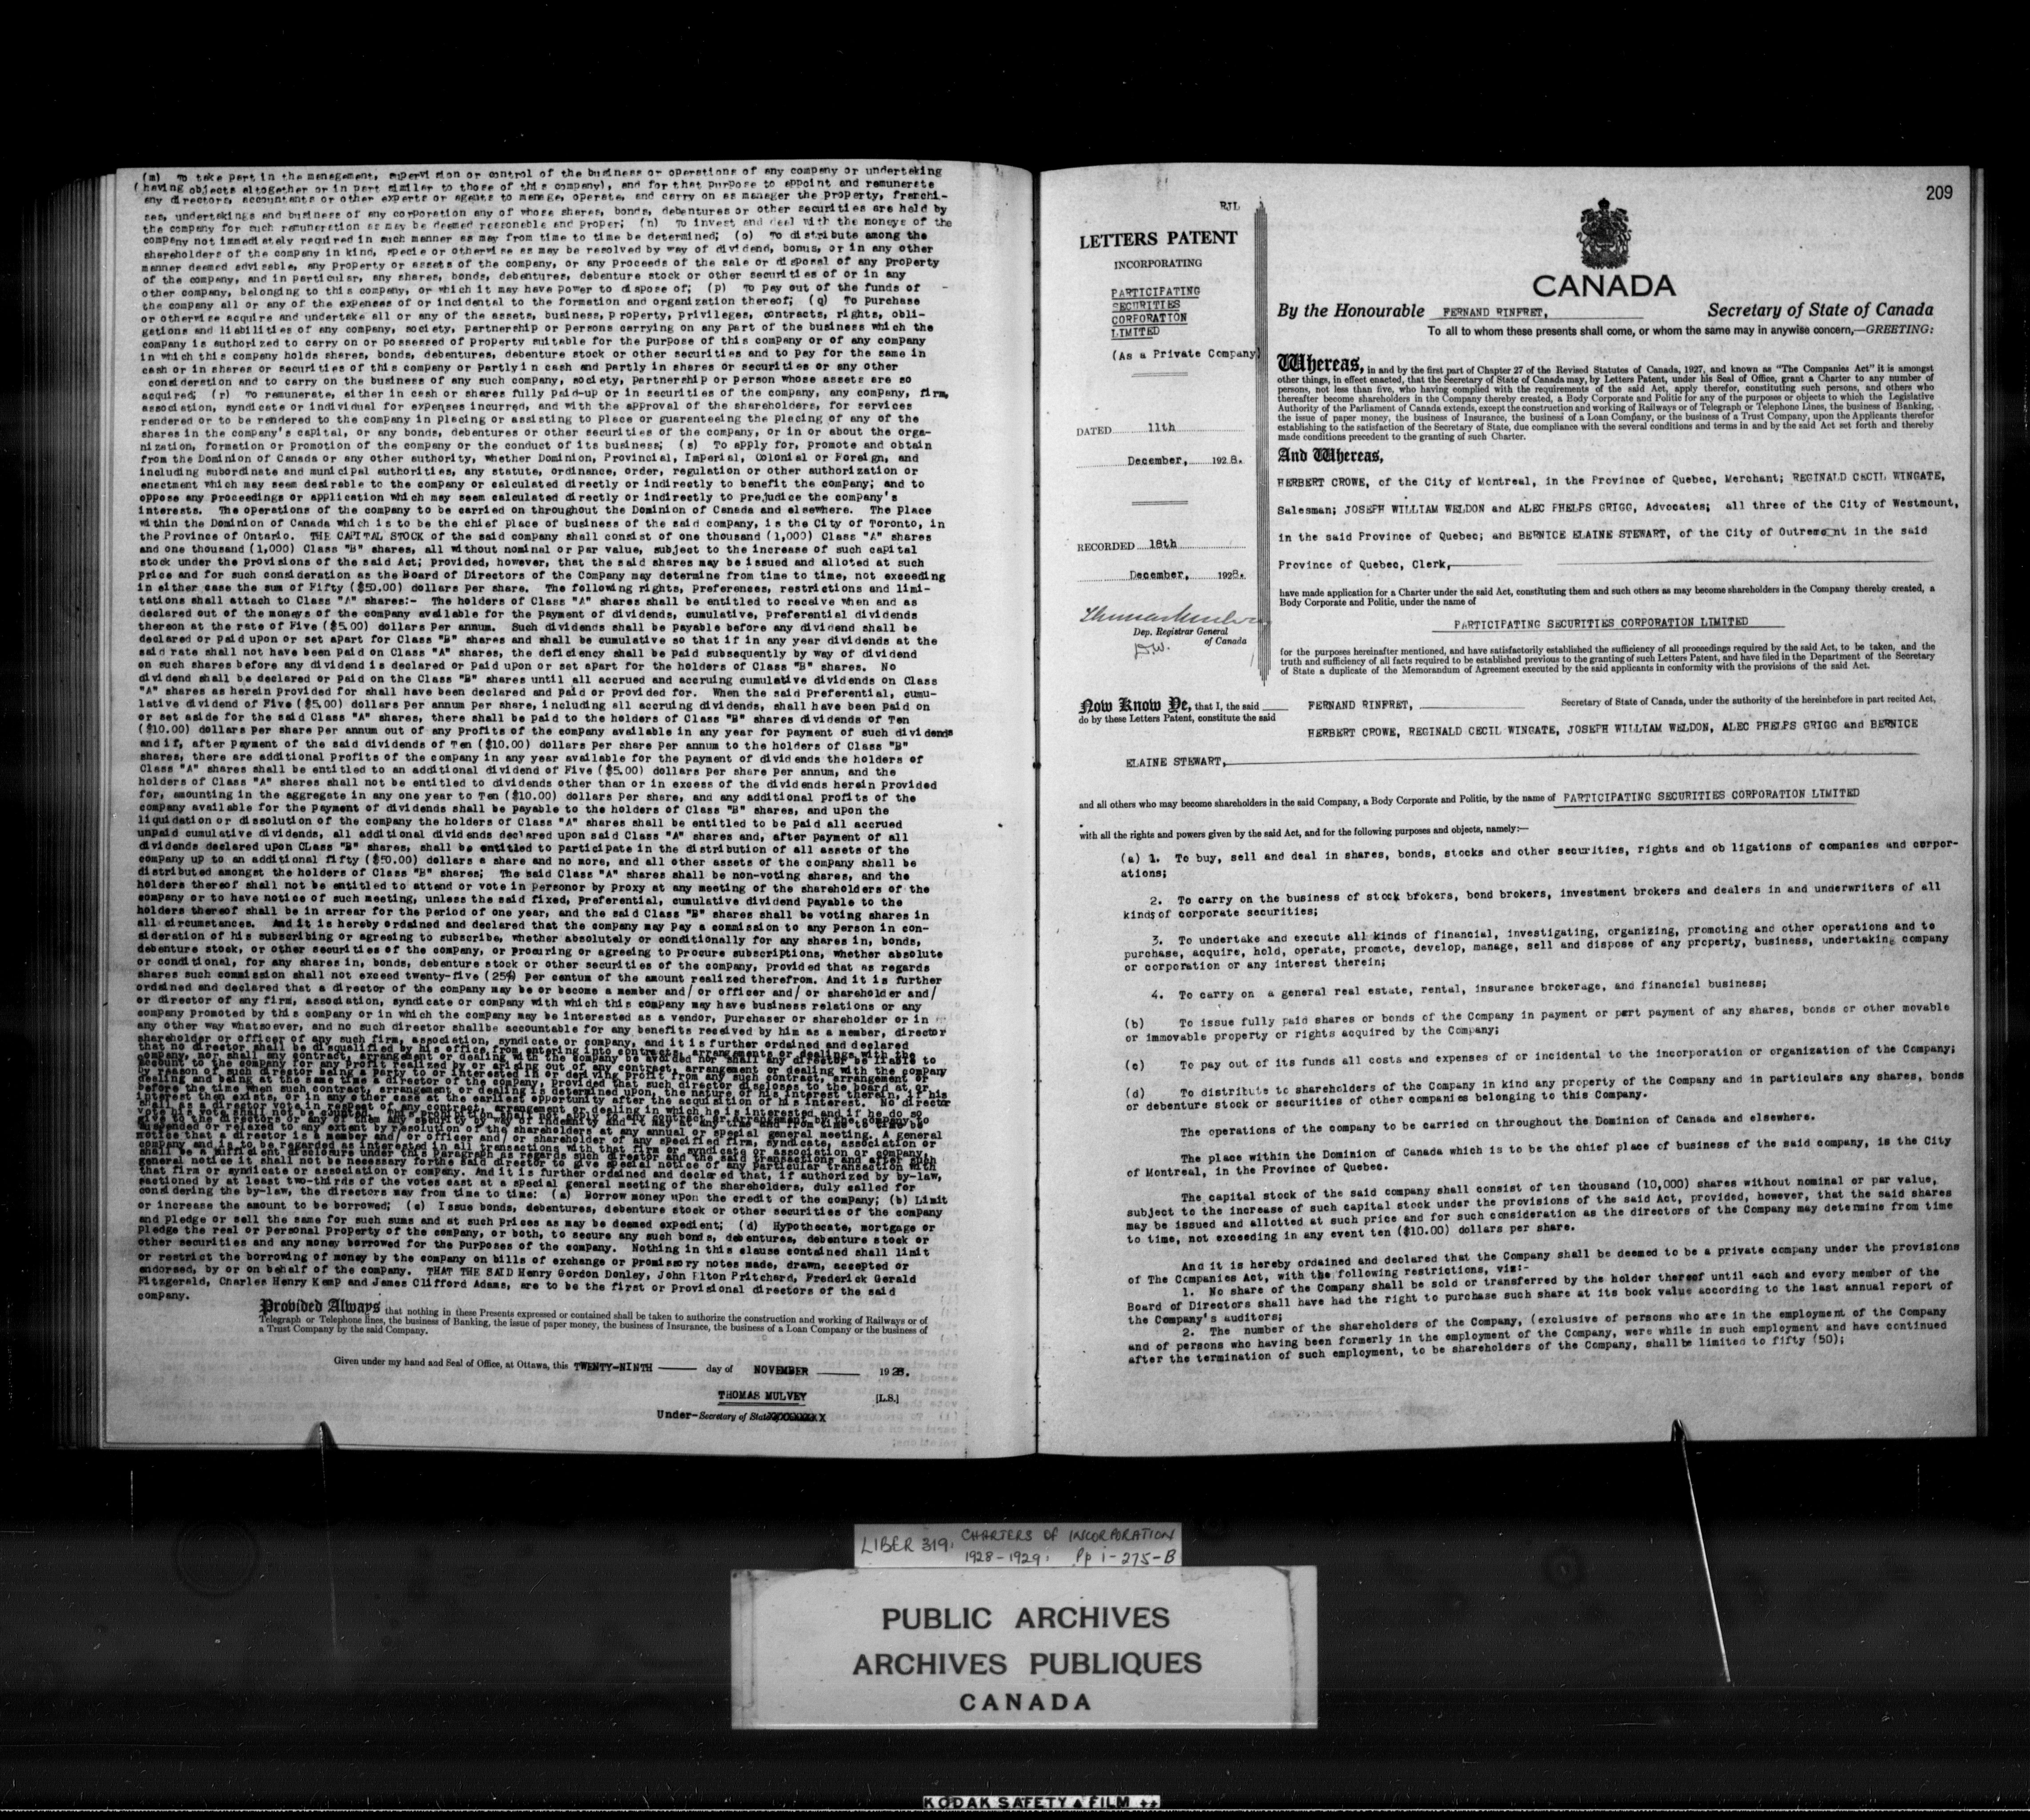 (m) To take part in the management, supervision or control of the business or operations of any company or undertaking
(having objects altogether or in part similar to those of this company), and for that purpose to appoint and remunerate
any directors, accountants or other experts or agents to manage, operate, and carry on as manager the property, franchi-
ses, undertakings and business of any corporation any of whose shares, bonds, debentures or other securities are held by
the company for such remuneration as may be deemed reasonable and proper; (n) To invest and deal with the moneys of the
company not immediately required in such manner as may from time to time be determined; (o) To distribute among the
shareholders of the company in kind, specie or otherwise as may be resolved by way of dividend, bonus, or in any other
manner deemed advisable, any property or assets of the company, or any proceeds of the sale or disposal of any property
of the company, and in particular, any shares, bonds, debentures, debenture stock or other securities of or in any
other company, belonging to this company, or which it may have power to dispose of; (p) To pay out of the funds of
the company all or any of the expenses of or incidental to the formation and organization thereof; (q) To purchase
or otherwise acquire and undertake all or any of the assets, business, property, privileges, contracts, rights, obli-
gations and liabilities of any company, society, partnership or persons carrying on any part of the business which the
company is authorized to carry on or possessed of property suitable for the purpose of this company or of any company
in which this company holds shares, bonds, debentures, debenture stock or other securities and to pay for the same in
cash or in shares or securities of this company or partly in cash and partly in shares or securities or any other
consideration and to carry on the business of any such company, society, partnership or person whose assets are so
acquired; (r) To remunerate, either in cash or shares fully paid-up or in securities of the company, any company, firm,
association, syndicate or individual for expenses incurred, and with the approval of the shareholders, for services
rendered or to be rendered to the company in placing or assisting to place or guaranteeing the placing of any of the
shares in the company's capital, or any bonds, debentures or other securities of the company, or in or about the orga-
nization, formation or promotion of the company or the conduct of its business; (s) To apply for, promote and obtain
from the Dominion of Canada or any other authority, whether Dominion, Provincial, Imperial, Colonial or Foreign, and
including subordinate and municipal authorities, any statute, ordinance, order, regulation or other authorization or
enactment which may seem desirable to the company or calculated directly or indirectly to benefit the company; and to
oppose any proceedings or application which may seem calculated directly or indirectly to prejudice the company's
interests. The operations of the company to be carried on throughout the Dominion of Canada and elsewhere. The place
within the Dominion of Canada which is to be the chief place of business of the said company, is the City of Toronto, in
the Province of Ontario. THE CAPITAL STOCK of the said company shall consist of one thousand (1,000) Class "A" shares
and one thousand (1,000) Class "B" shares, all without nominal or par value, subject to the increase of such capital
stock under the provisions of the said Act; provided, however, that the said shares may be issued and alloted at such
price and for such consideration as the Board of Directors of the Company may determine from time to time, not exceeding
in either case the sum of Fifty ($50.00) dollars per share. The following rights, preferences, restrictions and limi-
tations shall attach to Class "A" shares:- The holders of Class "A" shares shall be entitled to receive when and as
declared out of the moneys of the company available for the payment of dividends, cumulative, preferential dividends
thereon at the rate of Five ($5.00) dollars per annum. Such dividends shall be payable before any dividend shall be
declared or paid upon or set apart for Class "B" shares and shall be cumulative so that if in any year dividends at the
said rate shall not have been paid on Class "A" shares, the deficiency shall be paid subsequently by way of dividend
on such shares before any dividend is declared or paid upon or set apart for the holders of Class "B" shares. No
dividend shall be declared or paid on the Class "B" shares until all accrued and accruing cumulative dividends on Class
"A" shares as herein provided for shall have been declared and paid or provided for. When the said preferential, cumu-
lative dividend of Five ($5.00) dollars per annum per share, including all accruing dividends, shall have been paid on
or set aside for the said Class "A" shares, there shall be paid to the holders of Class "B" shares dividends of Ten
($10.00) dollars per share per annum out of any profits of the company available in any year for payment of such dividends
and if, after payment of the said dividends of Ten ($10.00) dollars per share per annum to the holders of Class "B"
shares, there are additional profits of the company in any year available for the payment of dividends the holders of
Class "A" shares shall be entitled to an additional dividend of Five ($5.00) dollars per share per annum, and the
holders of Class "A" shares shall not be entitled to dividends other than or in excess of the dividends herein provided
for, amounting in the aggregate in any one year to Ten ($10.00) dollars per share, and any additional profits of the
company available for the payment of dividends shall be payable to the holders of Class "B" shares, and upon the
liquidation or dissolution of the company the holders of Class "A" shares shall be entitled to be paid all accrued
unpaid cumulative dividends, all additional dividends declared upon said Class "A" shares and, after payment of all
dividends declared upon Class "B" shares, shall be entitled to participate in the distribution of all assets of the
company up to an additional fifty ($50.00) dollars a share and no more, and all other assets of the company shall be
distributed amongst the holders of Class "B" shares; The said Class "A" shares shall be non-voting shares, and the
holders thereof shall not be entitled to attend or vote in person or by proxy at any meeting of the shareholders of the
company or to have notice of such meeting, unless the said fixed, preferential, cumulative dividend payable to the
holders thereof shall be in arrear for the period of one year, and the said Class "B" shares shall be voting shares in
all circumstances. And it is hereby ordained and declared that the company may pay a commission to any person in con-
sideration of his subscribing or agreeing to subscribe, whether absolutely or conditionally for any shares in, bonds,
debenture stock, or other securities of the company, or procuring or agreeing to procure subscriptions, whether absolute
or conditional, for any shares in, bonds, debenture stock or other securities of the company, provided that as regards
shares such commission shall not exceed twenty-five (25%) per centum of the amount realized therefrom. And it is further
ordained and declared that a director of the company may be or become a member and/ or officer and/ or shareholder and/
or director of any firm, association, syndicate or company with which this company may have business relations or any
company promoted by this company or in which the company may be interested as a vendor, purchaser or shareholder or in
any other way whatsoever, and no such director shall be accountable for any benefits received by him as a member, director
shareholder or officer of any such firm, association, syndicate or company, and it is further ordained and declared
that no director shall be disqualified by his office from entering into contracts, arrangements or dealings with the
company, nor shall any contract, arrangement or dealing with the company be avoided nor shall any director be liable to
account to the company for any profit realized by or arising out of any contract, arrangement or dealing with the company
by reason of such director being a party to or interested in or deriving profit from any such contract, arrangement or
dealing and being at the same time a director of the company, provided that such director discloses to the board at, or
before the time when such contract, arrangement or dealing is determined upon, the nature of his interest therein, if his
interest then exists, or in any other case at the earliest opportunity after the acquisition of his interest. No director
shall as a director vote in respect of any contract, arrangement or dealing in which he is interested and if he do so
vote his vote shall not be counted,
suspended or relaxed to any extent by resolution of the shareholders at any annual or special general meeting. A general
notice that a director is a member and/ or officer and/ or shareholder of any specified firm, syndicate, association or
company and is to be regarded as interested in all transactions with that firm or syndicate or association or company,
shall be a sufficient disclosure under this paragraph as regards such director and the said transactions and after such
general notice it shall not be necessary for the said director to give special notice of any particular transaction with
that firm or syndicate or association or company. And it is further ordained and declared that, if authorized by by-law,
sanctioned by at least two-thirds of the votes cast at a special general meeting of the shareholders, duly called for
considering the by-law, the directors may from time to time: (a) Borrow money upon the credit of the company; (b) Limit
or increase the amount to be borrowed; (c) Issue bonds, debentures, debenture stock or other securities of the company
and pledge or sell the same for such sums and at such prices as may be deemed expedient; (d) Hypothecate, mortgage or
pledge the real or personal property of the company, or both, to secure any such bonds, debentures, debenture stock or
other securities and any money borrowed for the purposes of the company. Nothing in this clause contained shall limit
or restrict the borrowing of money by the company on bills of exchange or promissory notes made, drawn, accepted or
endorsed, by or on behalf of the company. THAT THE SAID Henry Gordon Donley, John Elton Pritchard, Frederick Gerald
Fitzgerald, Charles Henry Kemp and James Clifford Adams, are to be the first or provisional directors of the said
company.
Provided Always that nothing in these Presents expressed or contained shall be taken to authorize the construction and working of Railways or of
Telegraph or Telephone lines, the business of Banking, the issue of paper money, the business of Insurance, the business of a Loan Company or the business of
a Trust Company by the said Company.
Given under my hand and Seal of Office, at Ottawa, this TWENTY-NINTH day of NOVEMBER 1928.
THOMAS MULVEY [L.S.]
Under-Secretary of State
209
RJL
LETTERS PATENT
INCORPORATING
PARTICIPATING
SECURITIES
CORPORATION
LIMITED
(As a Private Company)
DATED 11th
December, 1928.
RECORDED 18th
December, 1928.
Thomas Mulvey
Dep. Registrar General
of Canada
D.W.
CANADA
By the Honourable FERNAND RINFRET, Secretary of State of Canada
To all to whom these presents shall come, or whom the same may in anywise concern,—GREETING:
Whereas, in and by the first part of Chapter 27 of the Revised Statutes of Canada, 1927, and known as "The Companies Act" it is amongst
other things, in effect enacted, that the Secretary of State of Canada may, by Letters Patent, under his Seal of Office, grant a Charter to any number of
persons, not less than five, who having complied with the requirements of the said Act, apply therefor, constituting such persons, and others who
thereafter become shareholders in the Company thereby created, a Body Corporate and Politic for any of the purposes or objects to which the Legislative
Authority of the Parliament of Canada extends, except the construction and working of Railways or of Telegraph or Telephone Lines, the business of Banking,
the issue of paper money, the business of Insurance, the business of a Loan Company, or the business of a Trust Company, upon the Applicants therefor
establishing to the satisfaction of the Secretary of State, due compliance with the several conditions and terms in and by the said Act set forth and thereby
made conditions precedent to the granting of such Charter.
And Whereas,
HERBERT CROWE, of the City of Montreal, in the Province of Quebec, Merchant; REGINALD CECIL WINGATE,
Salesman; JOSEPH WILLIAM WELDON and ALEC PHELPS GRIGG, Advocates; all three of the City of Westmount,
in the said Province of Quebec; and BERNICE ELAINE STEWART, of the City of Outremont in the said
Province of Quebec, Clerk,
have made application for a Charter under the said Act, constituting them and such others as may become shareholders in the Company thereby created, a
Body Corporate and Politic, under the name of
PARTICIPATING SECURITIES CORPORATION LIMITED
for the purposes hereinafter mentioned, and have satisfactorily established the sufficiency of all proceedings required by the said Act, to be taken, and the
truth and sufficiency of all facts required to be established previous to the granting of such Letters Patent, and have filed in the Department of the Secretary
of State a duplicate of the Memorandum of Agreement executed by the said applicants in conformity with the provisions of the said Act.
Now Know Ye, that I, the said FERNAND RINFRET, Secretary of State of Canada, under the authority of the hereinbefore in part recited Act,
do by these Letters Patent, constitute the said
HERBERT CROWE, REGINALD CECIL WINGATE, JOSEPH WILLIAM WELDON, ALEC PHELPS GRIGG and BERNICE
ELAINE STEWART,
and all others who may become shareholders in the said Company, a Body Corporate and Politic, by the name of PARTICIPATING SECURITIES CORPORATION LIMITED
with all the rights and powers given by the said Act, and for the following purposes and objects, namely:—
(a) 1. To buy, sell and deal in shares, bonds, stocks and other securities, rights and ob ligations of companies and corpor-
ations;
2. To carry on the business of stock brokers, bond brokers, investment brokers and dealers in and underwriters of all
kinds of corporate securities;
3. To undertake and execute all kinds of financial, investigating, organizing, promoting and other operations and to
purchase, acquire, hold, operate, promote, develop, manage, sell and dispose of any property, business, undertaking company
or corporation or any interest therein;
4. To carry on a general real estate, rental, insurance brokerage, and financial business;
(b) To issue fully paid shares or bonds of the Company in payment or part payment of any shares, bonds or other movable
or immovable property or rights acquired by the Company;
(c) To pay out of its funds all costs and expenses of or incidental to the incorporation or organization of the Company;
(d) To distribute to shareholders of the Company in kind any property of the Company and in particulars any shares, bonds
or debenture stock or securities of other companies belonging to this Company.
The operations of the company to be carried on throughout the Dominion of Canada and elsewhere.
The place within the Dominion of Canada which is to be the chief place of business of the said company, is the City
of Montreal, in the Province of Quebec.
The capital stock of the said company shall consist of ten thousand (10,000) shares without nominal or par value,
subject to the increase of such capital stock under the provisions of the said Act, provided, however, that the said shares
may be issued and allotted at such price and for such consideration as the directors of the Company may determine from time
to time, not exceeding in any event ten ($10.00) dollars per share.
And it is hereby ordained and declared that the Company shall be deemed to be a private company under the provisions
of The Companies Act, with the following restrictions, viz:-
1. No share of the Company shall be sold or transferred by the holder thereof until each and every member of the
Board of Directors shall have had the right to purchase such share at its book value according to the last annual report of
the Company's auditors;
2. The number of the shareholders of the Company, (exclusive of persons who are in the employment of the Company
and of persons who having been formerly in the employment of the Company, were while in such employment and have continued
after the termination of such employment, to be shareholders of the Company, shall be limited to fifty (50);
LIBER 319, CHARTERS OF INCORPORATION
1928-1929, Pp i-275-B
PUBLIC ARCHIVES
ARCHIVES PUBLIQUES
CANADA
KODAK SAFETY FILM